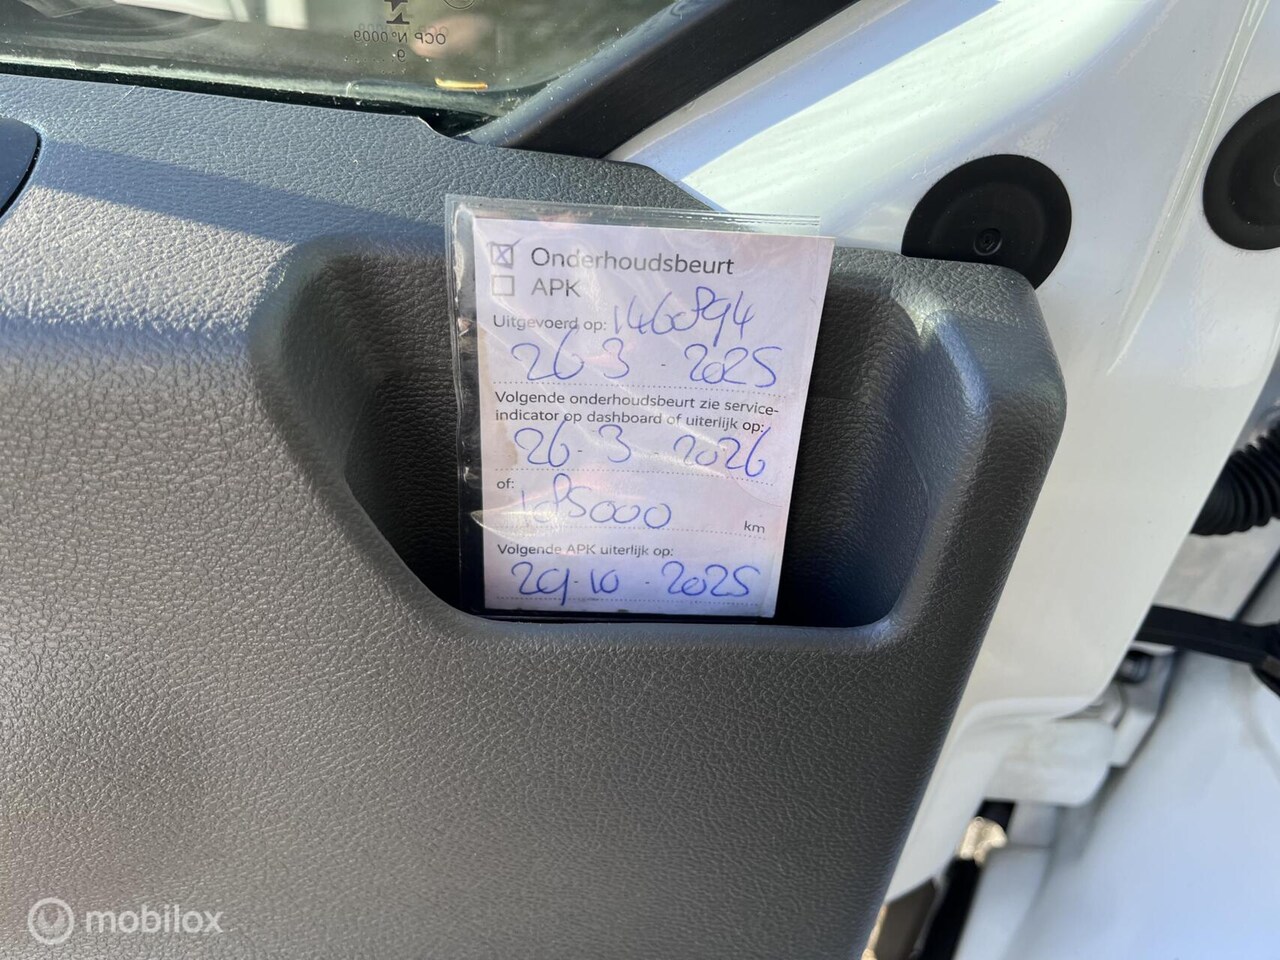 OCP Nº 0009
9
Onderhoudsbeurt
APK
Uitgevoerd op: 146894
26 3 - 2025
Volgende onderhoudsbeurt zie service-
indicator op dashboard of uiterlijk op:
26-3-2026
of:
185000 km
Volgende APK uiterlijk op:
29-10-2025
mobilox